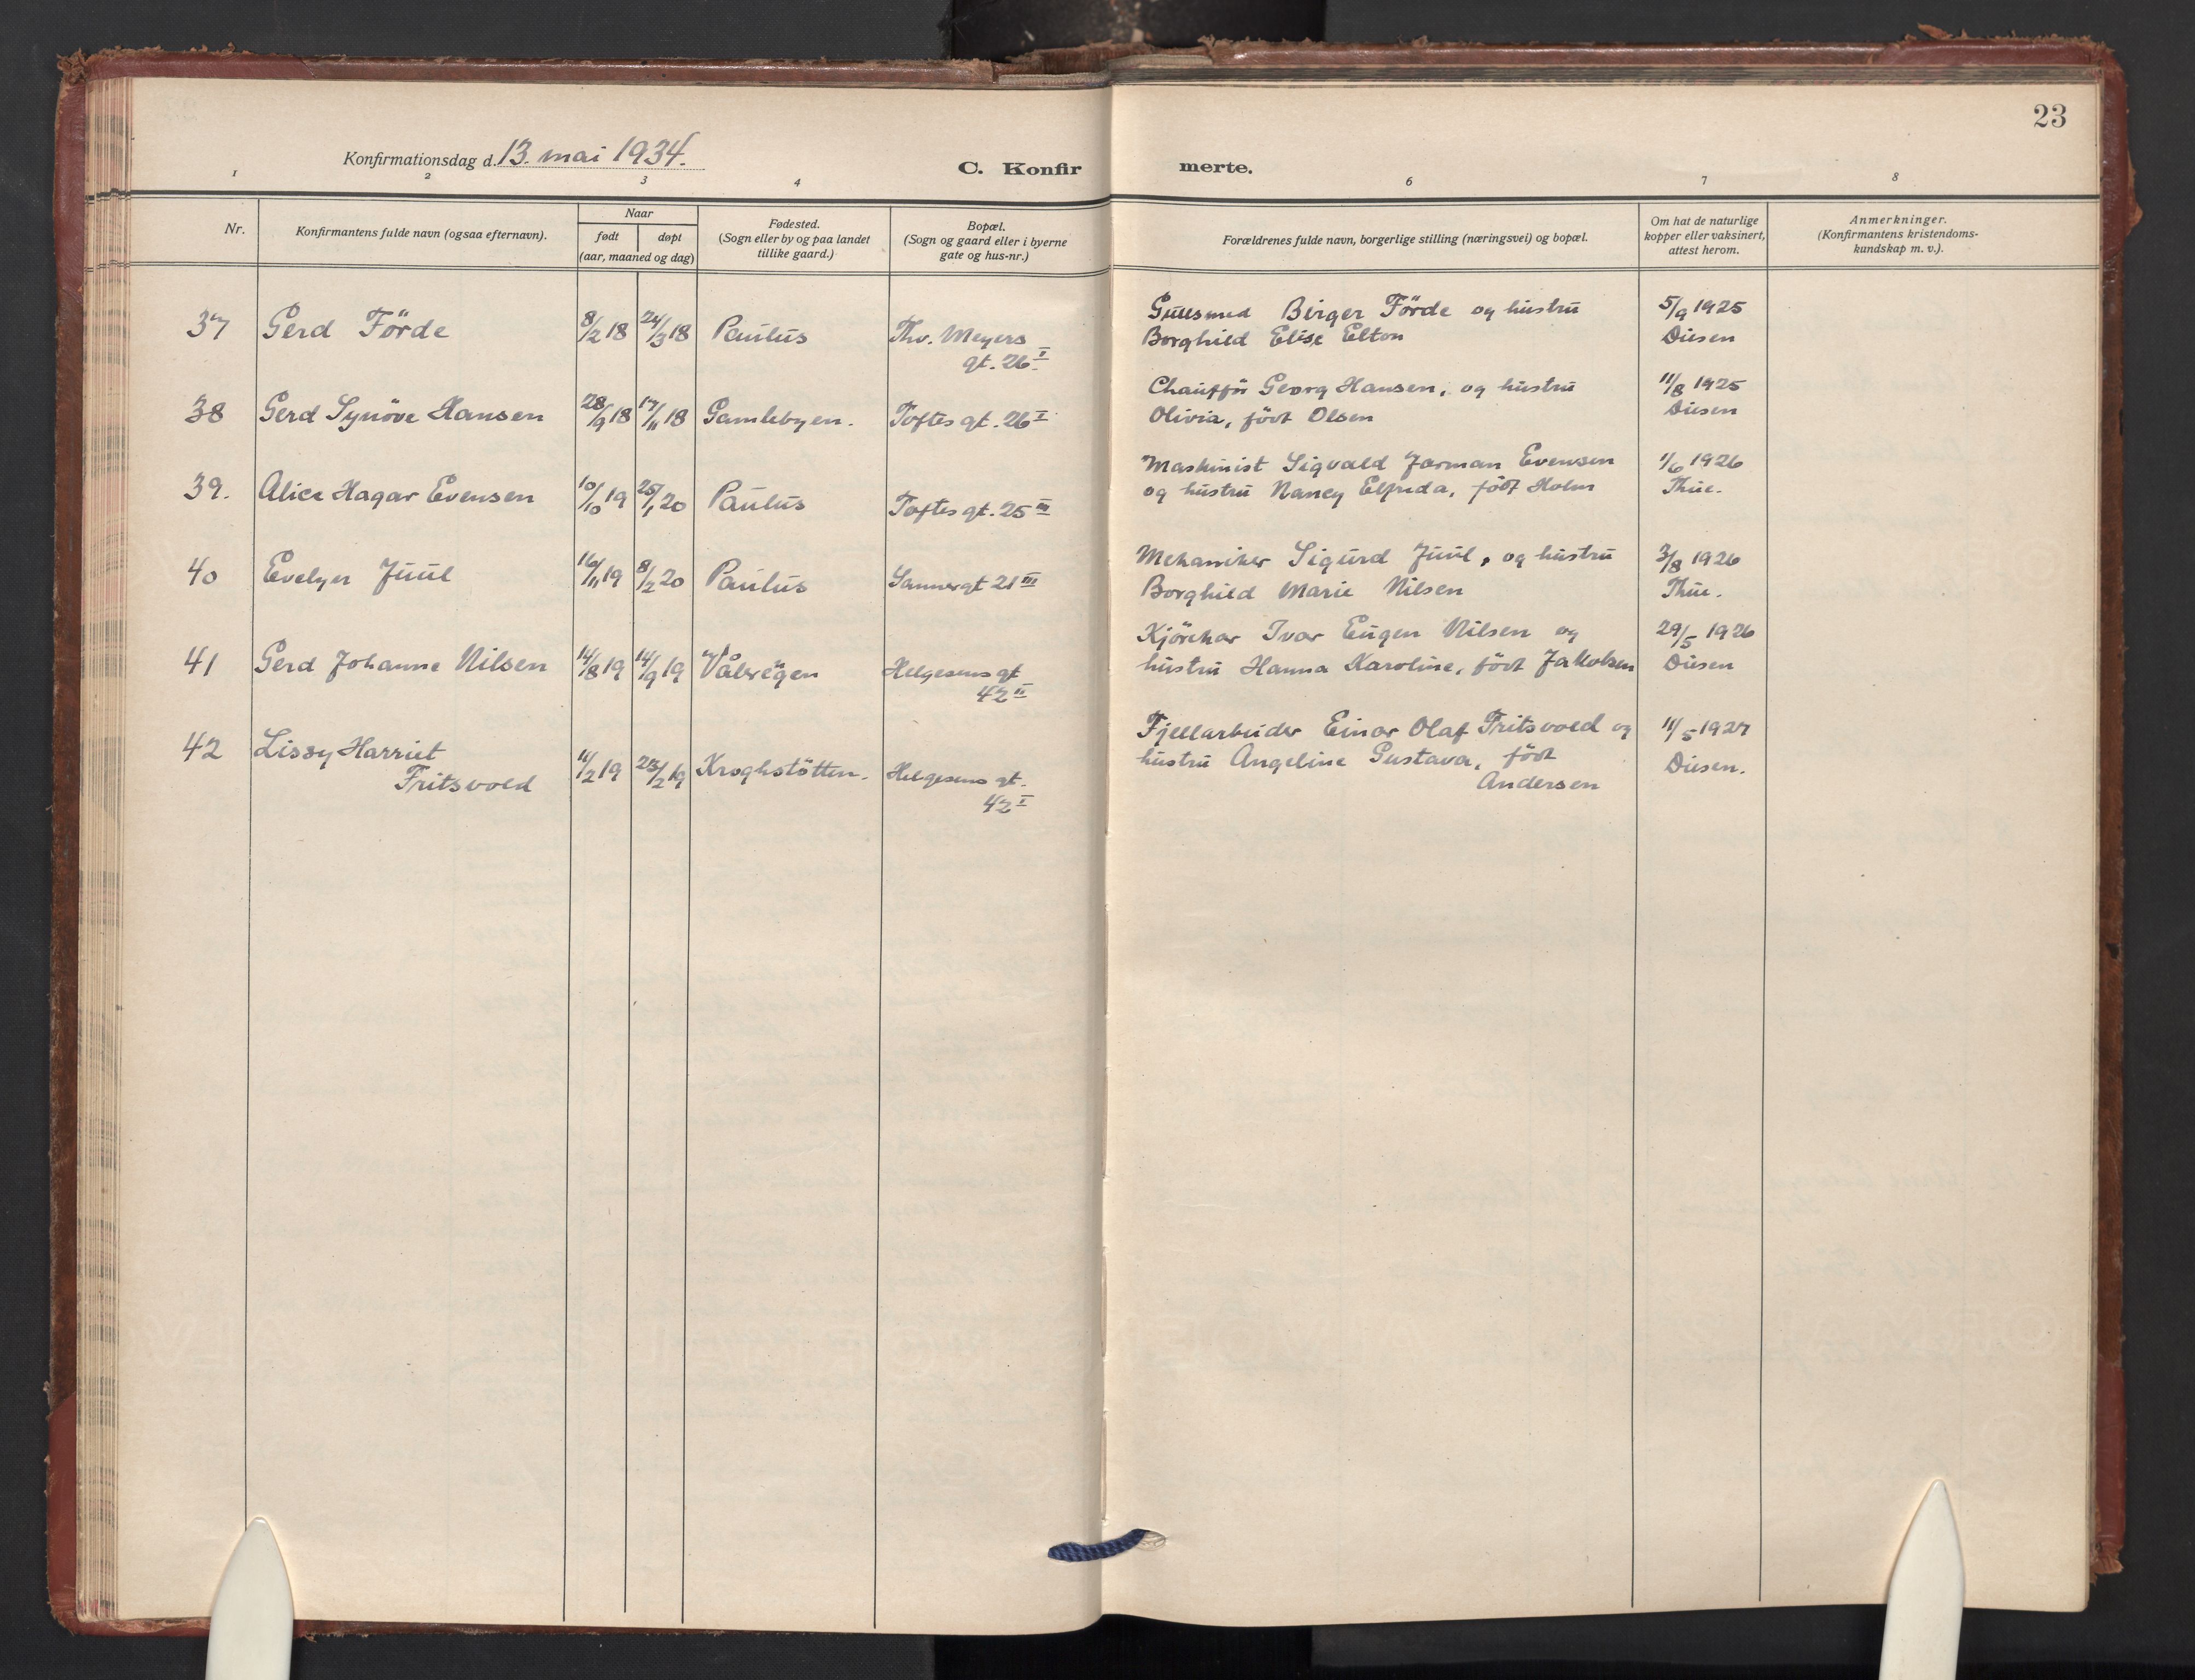 23
Konfirmationsdag d. 13. mai 1934.
C. Konfir merte.
1 2 3 4 6 7 8
Nr.
Konfirmantens fulde navn (ogsaa efternavn).
Naar
født døpt
(aar, maaned og dag)
Fødested.
(Sogn eller by og paa landet
tillike gaard.)
Bopæl.
(Sogn og gaard eller i byerne
gate og hus-nr.)
Forældrenes fulde navn, borgerlige stilling (næringsvei) og bopæl.
Om hat de naturlige
kopper eller vaksinert,
attest herom.
Anmerkninger.
(Konfirmantens kristendoms-
kundskap m. v.).
37 Gerd Förde 8/2 18 24/3 18 Paulus Thv. Meyers
gt. 26 I
Gullsmed Birger Förde og hustru
Borghild Elise Elton
5/9 1925
Diesen
38 Gerd Synöve Hansen 28/9 18 17/11 18 Gamlebyen. Toftes gt. 26 I
Chaufför Georg Hansen, og hustru
Olivia, född Olsen
11/8 1925
Diesen
39. Alice Hagar Evensen 10/10 19 25/1 20 Paulus Toftes gt. 25 III
Maskinist Sigvald Jarman Evensen
og hustru Nancy Elfrida, född Holm
1/6 1926
Thue.
40 Evelyn Juul 16/11 19 8/2 20 Paulus Sannergt 21 III
Mekaniker Sigurd Juul, og hustru
Borghild Marie Nilsen
3/8 1926
Thue.
41 Gerd Johanne Nilsen 14/8 19 14/9 19 Vålregen Helgesens gt
42 II
Kjörekar Ivar Eugen Nilsen og
hustru Hanna Karoline, född Jakobsen
29/5 1926
Diesen
42 Lissy Harriet
Fritsvold
11/2 19 23/2 19 Kroghstötten. Helgesens gt.
42 I
Fjellarbeider Einar Olaf Fritsvold og
hustru Angeline Gustava, född
Andersen
11/5 1927
Diesen.